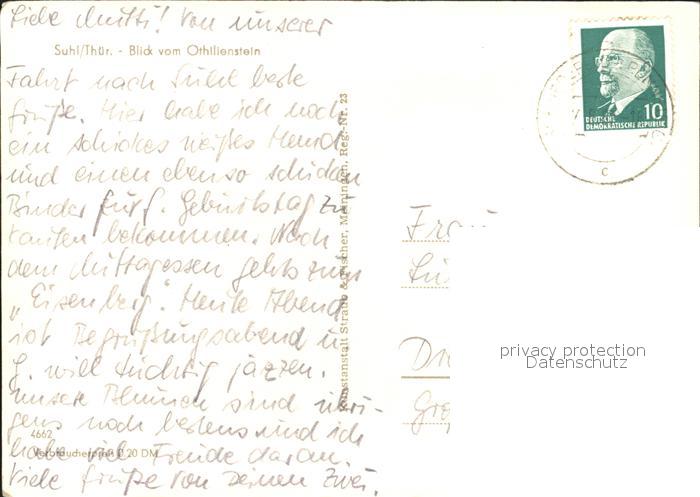 Liebe Mutti! Von unserer
Suhl/Thür. - Blick vom Othilienstein
Fahrt nach Suhl beste
Grüße. Hier habe ich noch
ein schickes weißes Hemd
und einen ebenso schicken
Binder für G. Geburtstag zu
kaufen bekommen. Nach
dem Mittagessen gehts zum
„Eisenberg". Heute Abend
ist Begrüßungsabend u.
G. will tüchtig jazzen.
Unsere Blumen sind übri-
gens noch bestens und ich
habe viel Freude daran.
Viele Grüße von Deinen Zwei.
4662
Verbraucherpreis 0,20 DM
Kunstanstalt Straub & Fischer, Meiningen, Reg.-Nr. 23
10
DEUTSCHE
DEMOKRATISCHE REPUBLIK
c
privacy protection
Datenschutz